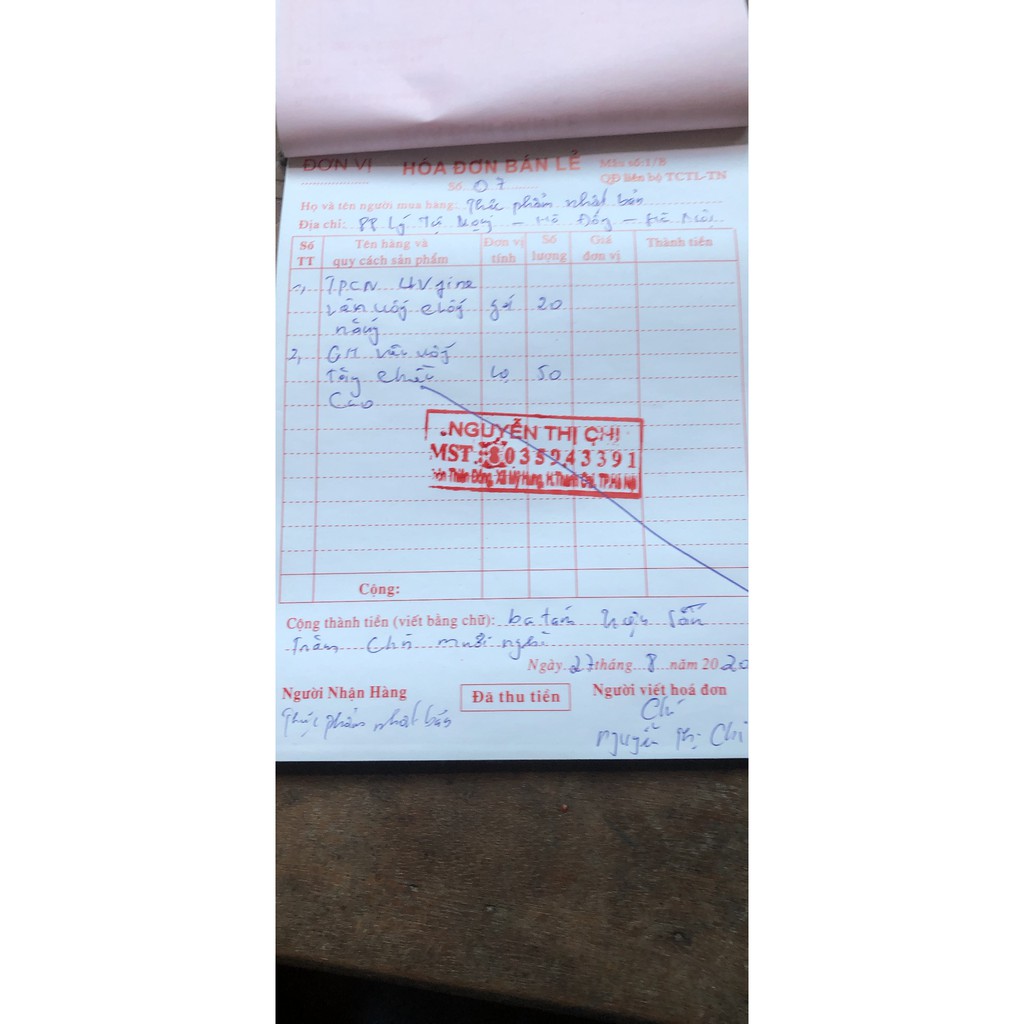 ĐƠN VỊ HÓA ĐƠN BÁN LẺ Mẫu số: 1/B
Số 07 QĐ liên bộ TCTL-TN
Họ và tên người mua hàng: Thực phẩm nhật bản
Địa chỉ: 88 Lý Tự Trọng - Hà Đông - Hà Nội
Số TT Tên hàng và quy cách sản phẩm Đơn vị tính Số lượng Giá đơn vị Thành tiền
1, TPCN
viên uống chống gói 20
nắng
2, viên uống
Tăng chiều lọ 50
Cao
NGUYỄN THỊ CHI
MST: 8035943391
Thôn Thiên Đông, Xã Mỹ Hưng, H.Thanh Oai, TP.Hà Nội
Cộng:
Cộng thành tiền (viết bằng chữ): ba tám
Trăm chín mươi nghì
Ngày 27 tháng 8 năm 2020
Người Nhận Hàng Đã thu tiền Người viết hoá đơn
Thực phẩm nhật bản Chi
Nguyễn Thị Chi